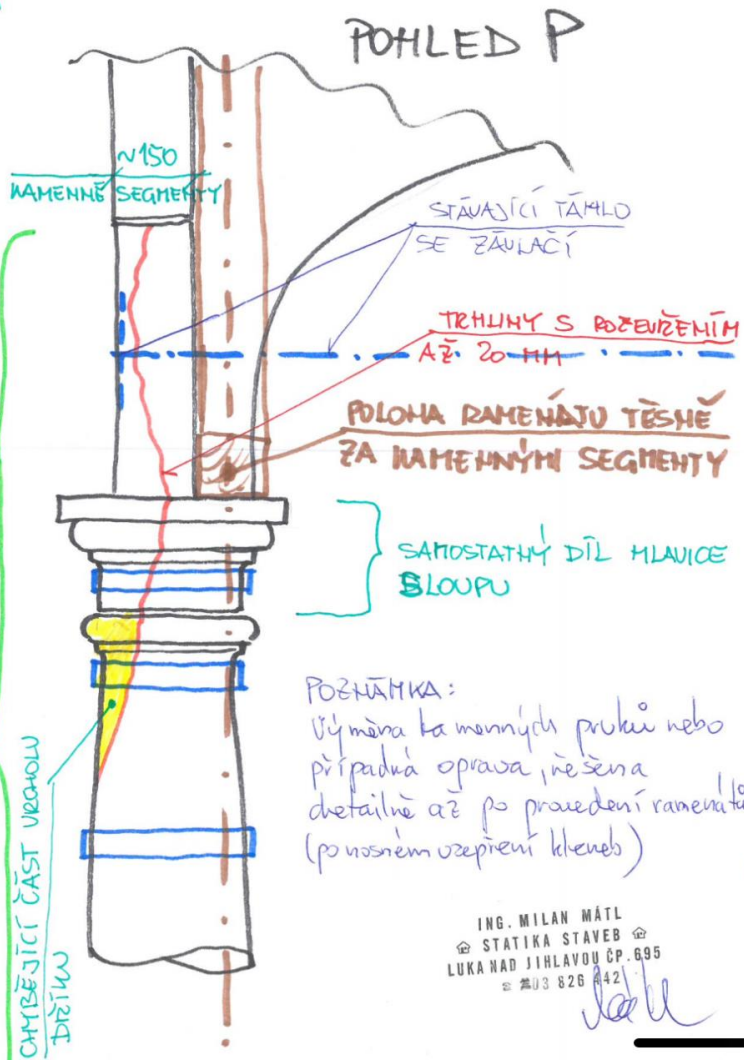 POHLED P
~150
KAMENNÉ SEGMENTY
STÁVAJÍCÍ TÁHLO
SE ZÁVLAČÍ
TRHLINY S ROZEVŘENÍM
AŽ 20 MM
POLOHA RAMENÁJU TĚSNĚ
ZA KAMENNÝMI SEGMENTY
SAMOSTATNÝ DÍL HLAVICE
SLOUPU
CHYBĚJÍCÍ ČÁST VRCHOLU
DŘÍKU
POZNÁMKA:
Výměna kamenných prvků nebo
případná oprava, řešena
detailně až po provedení ramenátů
(po nosném vzepření kleneb)
ING. MILAN MÁTL
STATIKA STAVEB
LUKA NAD JIHLAVOU ČP. 695
826 442